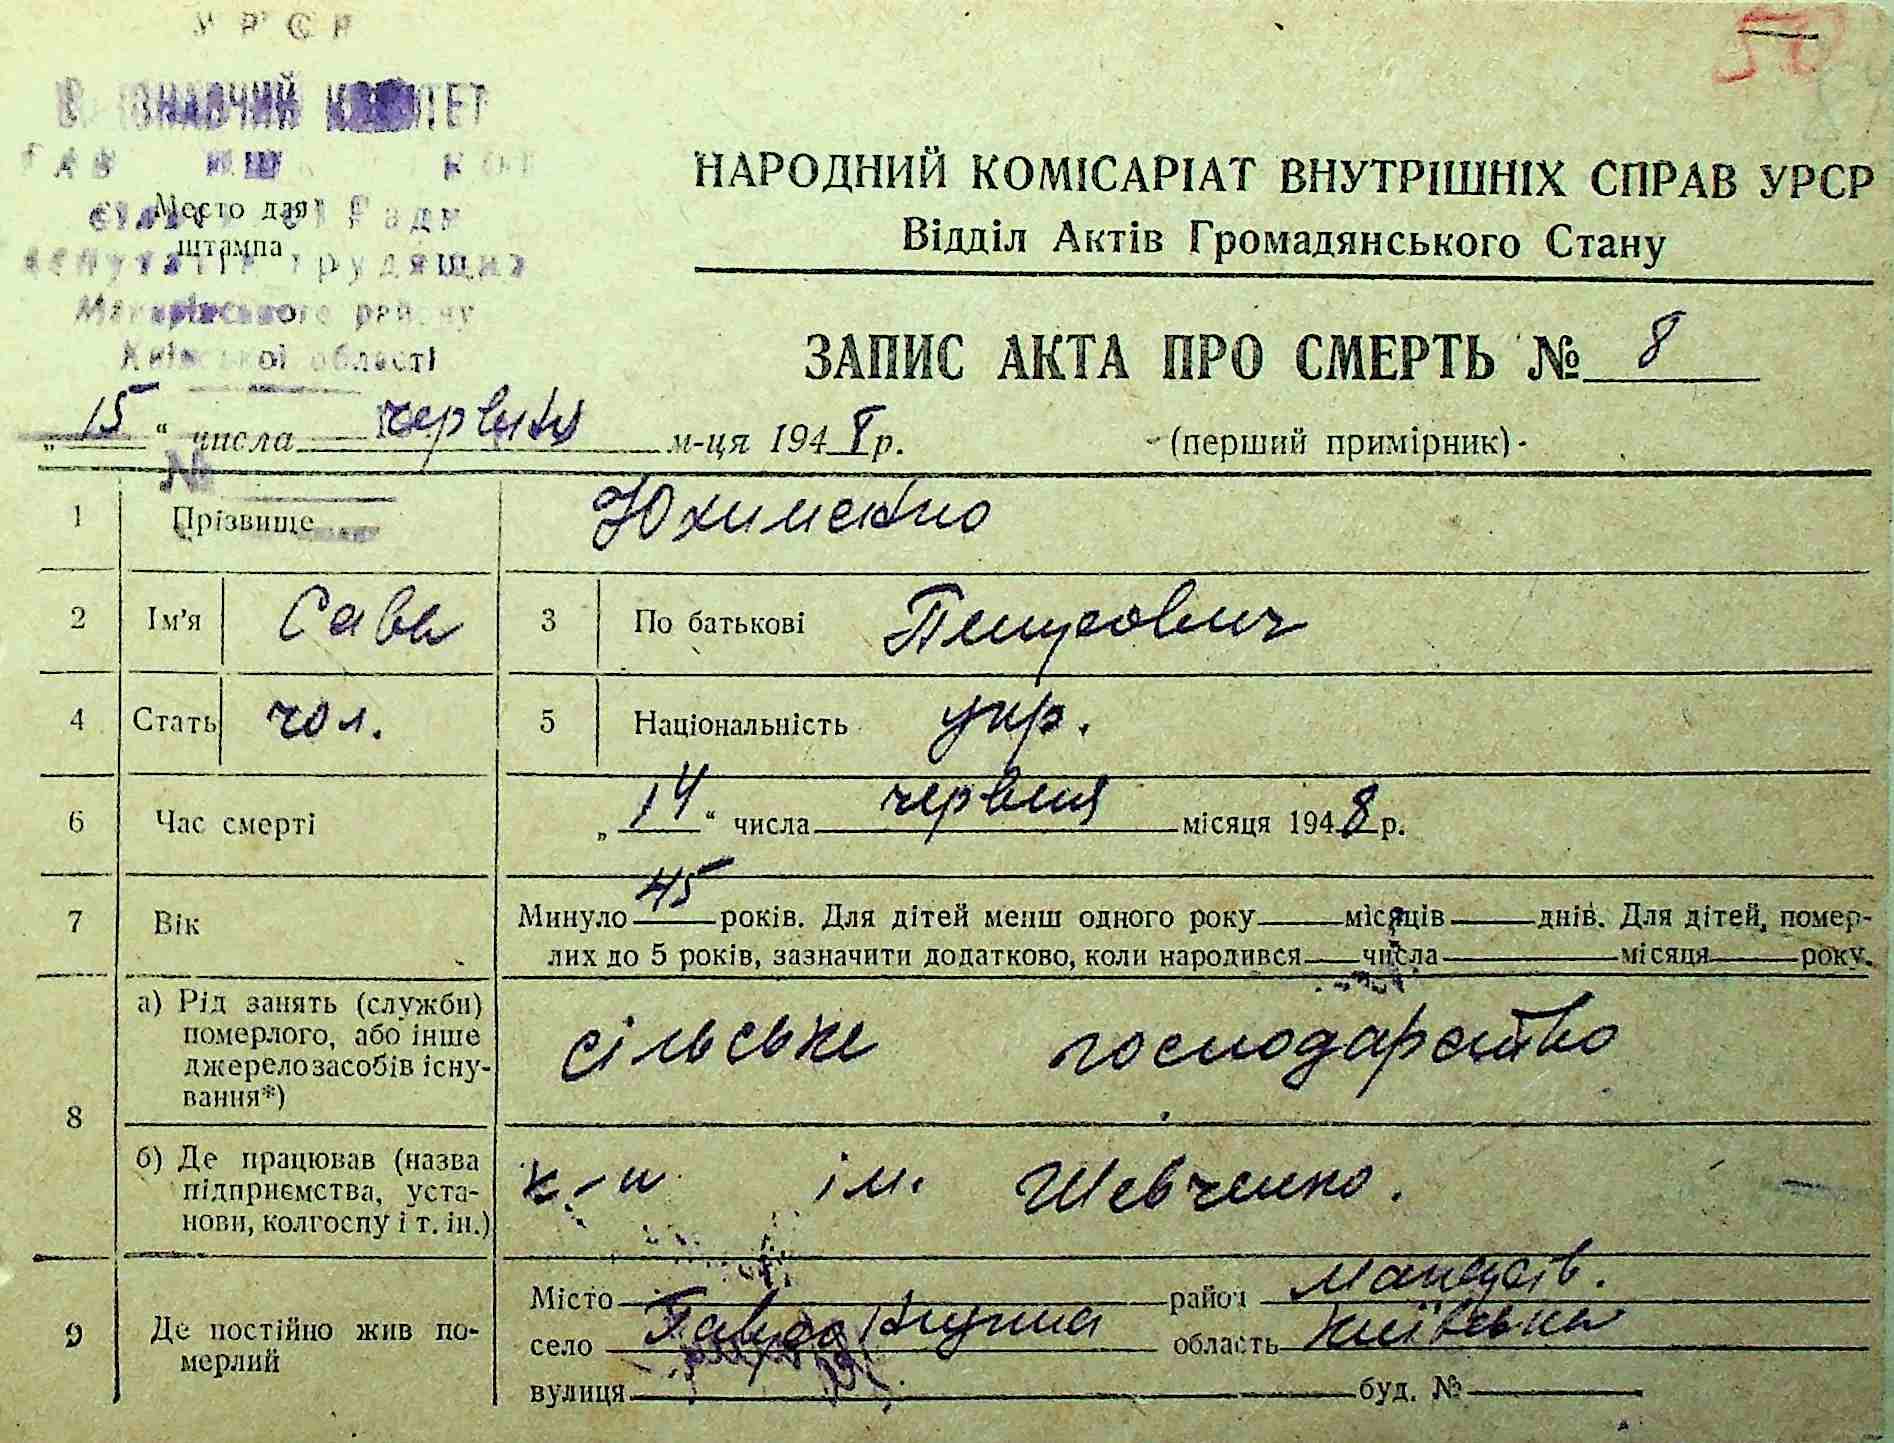 УРСР
КОМІТЕТ
Ради
трудящих
Макарівського району
Київської області
Место для
штампа
№
50
НАРОДНИЙ КОМІСАРІАТ ВНУТРІШНІХ СПРАВ УРСР
Відділ Актів Громадянського Стану
ЗАПИС АКТА ПРО СМЕРТЬ № 8
„15“ числа червня м-ця 1948 р.
(перший примірник)
1 Прізвище Юхименко
2 Ім'я Сава 3 По батькові Петрович
4 Стать чол. 5 Національність укр.
6 Час смерті „14“ числа червня місяця 1948 р.
7 Вік Минуло 45 років. Для дітей менш одного року місяців днів. Для дітей, помер-
лих до 5 років, зазначити додатково, коли народився числа місяця року.
8 а) Рід занять (служби)
померлого, або інше
джерело засобів існу-
вання*)
сільське господарство
б) Де працював (назва
підприємства, уста-
нови, колгоспу і т. ін.)
к-п ім. Шевченко.
9 Де постійно жив по-
мерлий
Місто район Макарів.
село область Київська
вулиця буд. №